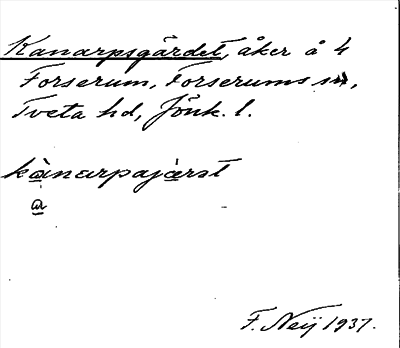 Kanarpsgärdet, åker å 4
Forserum, Forserums sn,
Tveta hd, Jönk. l.
kànarpajærst
a
F. Neij 1937.